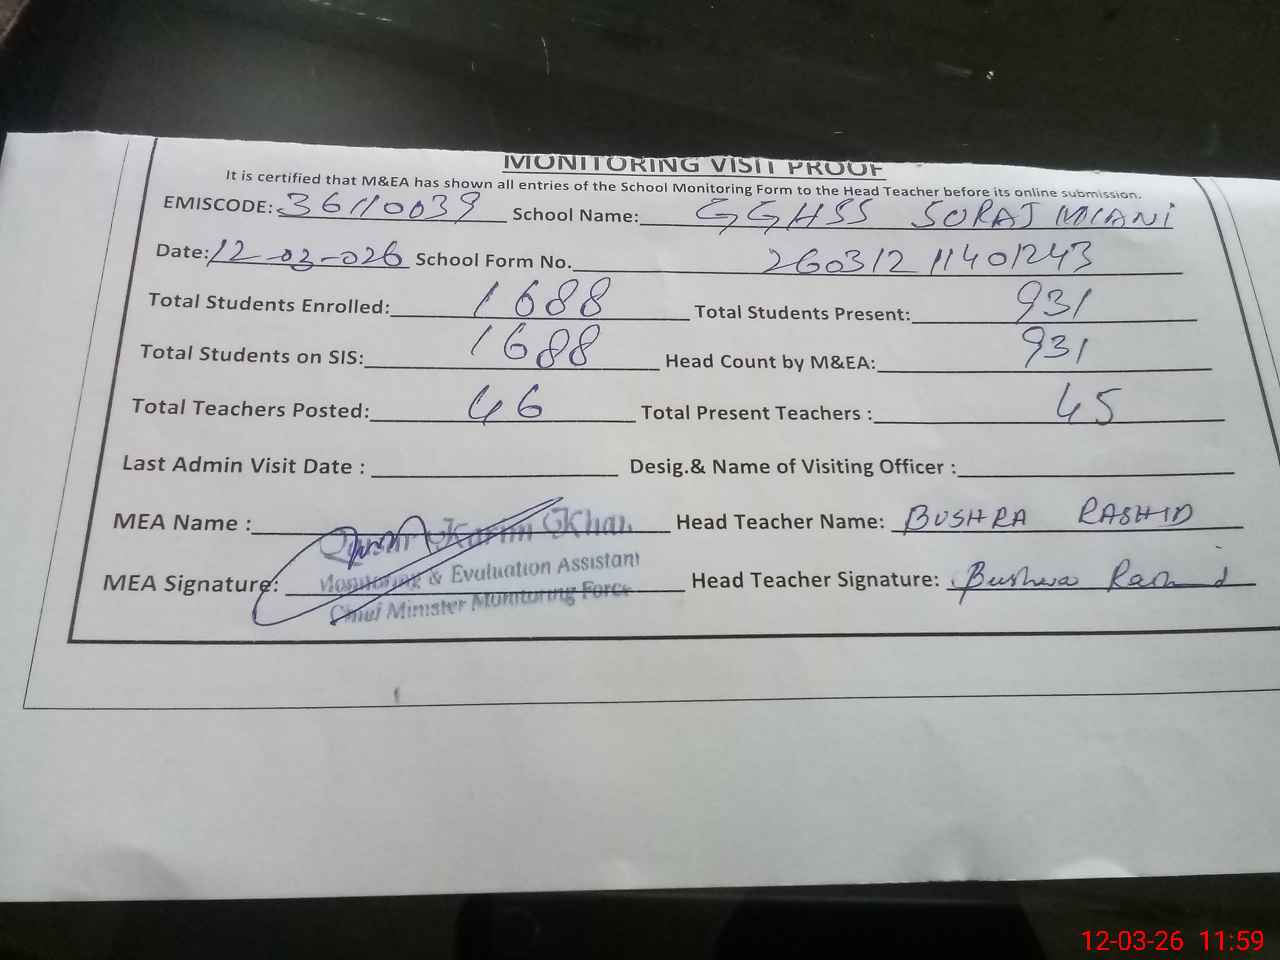 MONITORING VISIT PROOF
It is certified that M&EA has shown all entries of the School Monitoring Form to the Head Teacher before its online submission.
EMISCODE: 36110039 School Name: GGHSS SORAJ MIANI
Date: 12-03-026 School Form No. 260312 11401243
Total Students Enrolled: 1688 Total Students Present: 931
Total Students on SIS: 1688 Head Count by M&EA: 931
Total Teachers Posted: 46 Total Present Teachers : 45
Last Admin Visit Date : Desig.& Name of Visiting Officer :
MEA Name : Karim Khan Head Teacher Name: BUSHRA RASHID
Monitoring & Evaluation Assistant
MEA Signature: Head Teacher Signature: Bushra Rashid
Chief Minister Monitoring Force
12-03-26 11:59